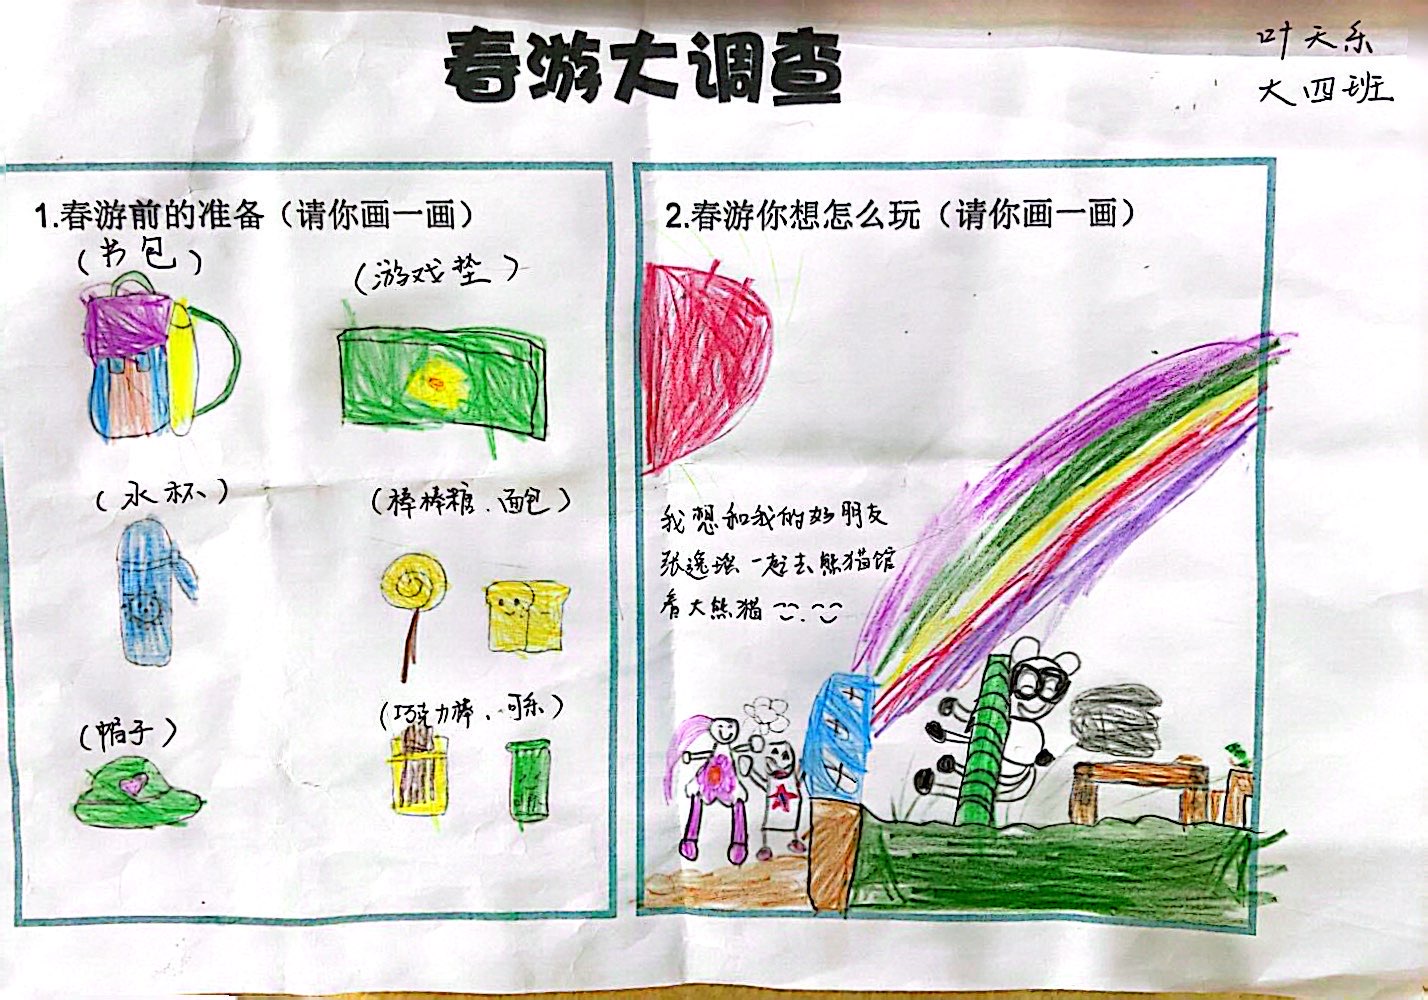 春游大调查
叶天乐
大四班
1.春游前的准备（请你画一画）
（书包）
（游戏垫）
（水杯）
（棒棒糖、面包）
（帽子）
（巧克力棒、可乐）
2.春游你想怎么玩（请你画一画）
我想和我的好朋友
张逸瑶一起去熊猫馆
看大熊猫